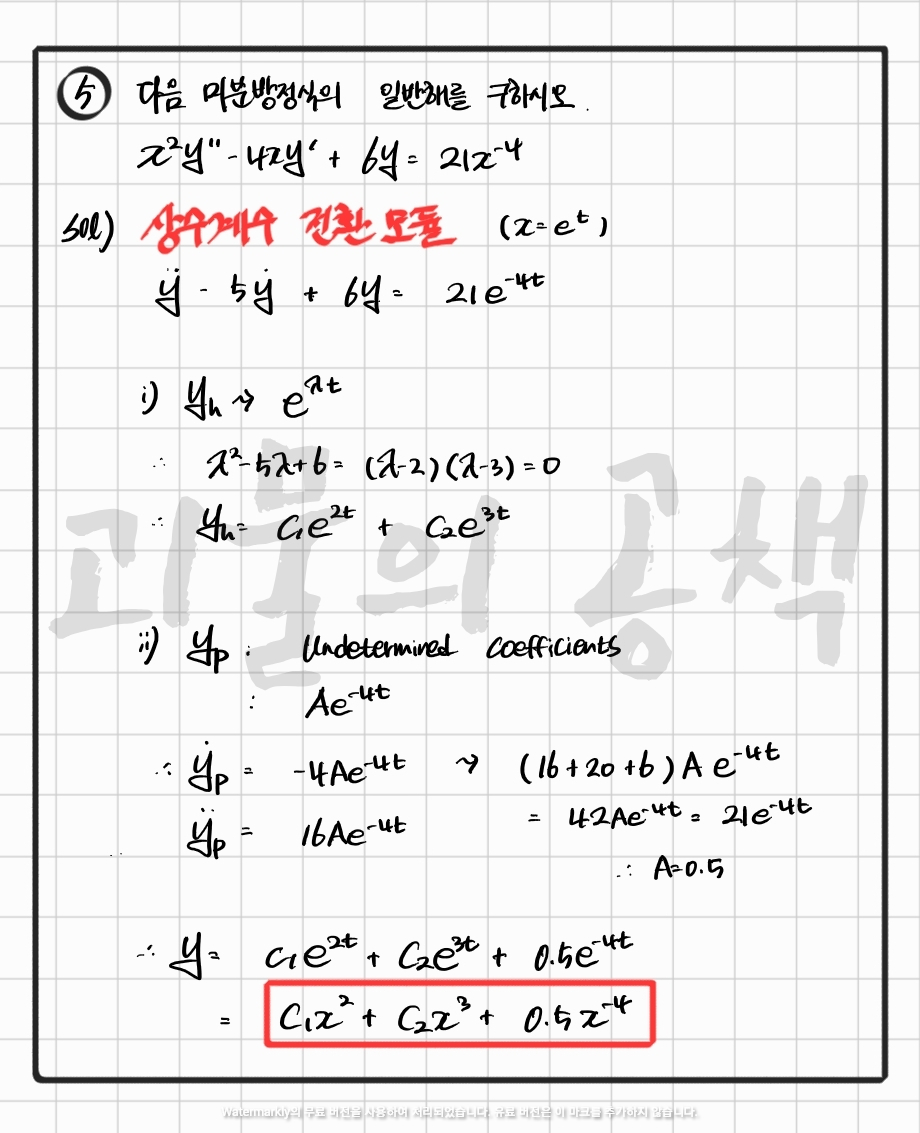 5 다음 미분방정식의 일반해를 구하시오.
x²y'' - 4xy' + 6y = 21x⁻⁴
sol) 상수계수 전환 모듈 (x=eᵗ)
ÿ - 5ẏ + 6y = 21e⁻⁴ᵗ
i) yₕ ⇝ e^λt
∴ λ²-5λ+6 = (λ-2)(λ-3) = 0
∴ yₕ = C₁e²ᵗ + C₂e³ᵗ
괴물의 공책
ii) yₚ : Undetermined coefficients
: Ae⁻⁴ᵗ
∴ ẏₚ = -4Ae⁻⁴ᵗ ⇝ (16+20+6)Ae⁻⁴ᵗ
ÿₚ = 16Ae⁻⁴ᵗ = 42Ae⁻⁴ᵗ = 21e⁻⁴ᵗ
∴ A=0.5
∴ y = C₁e²ᵗ + C₂e³ᵗ + 0.5e⁻⁴ᵗ
= C₁x² + C₂x³ + 0.5x⁻⁴
Watermarkly의 무료 버전을 사용하여 처리되었습니다. 유료 버전은 이 마크를 추가하지 않습니다.